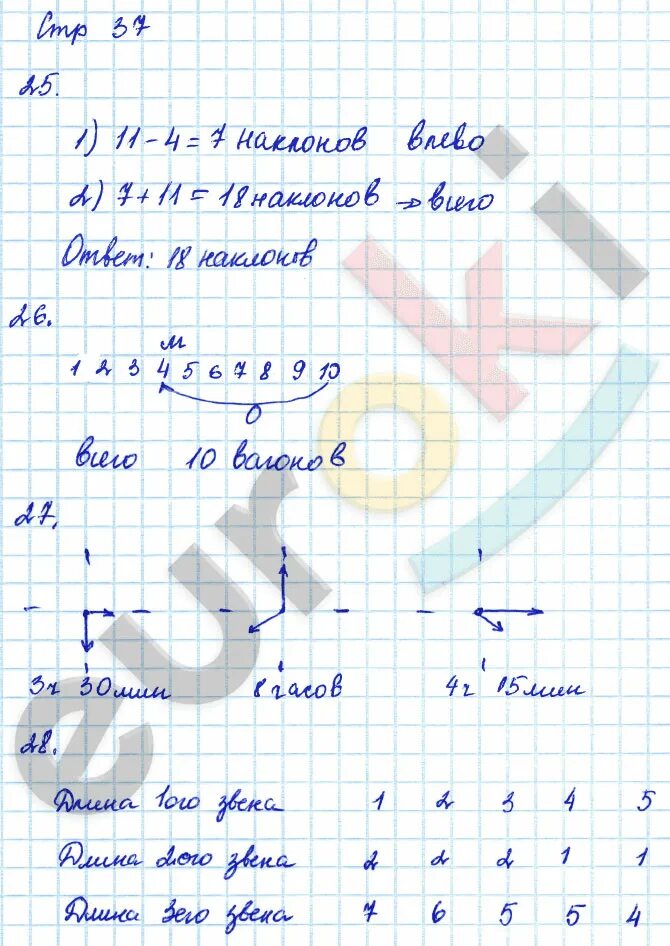 Стр 37
25.
1) 11 - 4 = 7 наклонов влево
2) 7 + 11 = 18 наклонов → всего
Ответ: 18 наклонов
26.
М
1 2 3 4 5 6 7 8 9 10
О
всего 10 вагонов
27.
3ч 30 мин 8 часов 4ч 15 мин
28.
Длина 1ого звена 1 2 3 4 5
Длина 2ого звена 2 2 2 1 1
Длина 3его звена 7 6 5 5 4
euroki